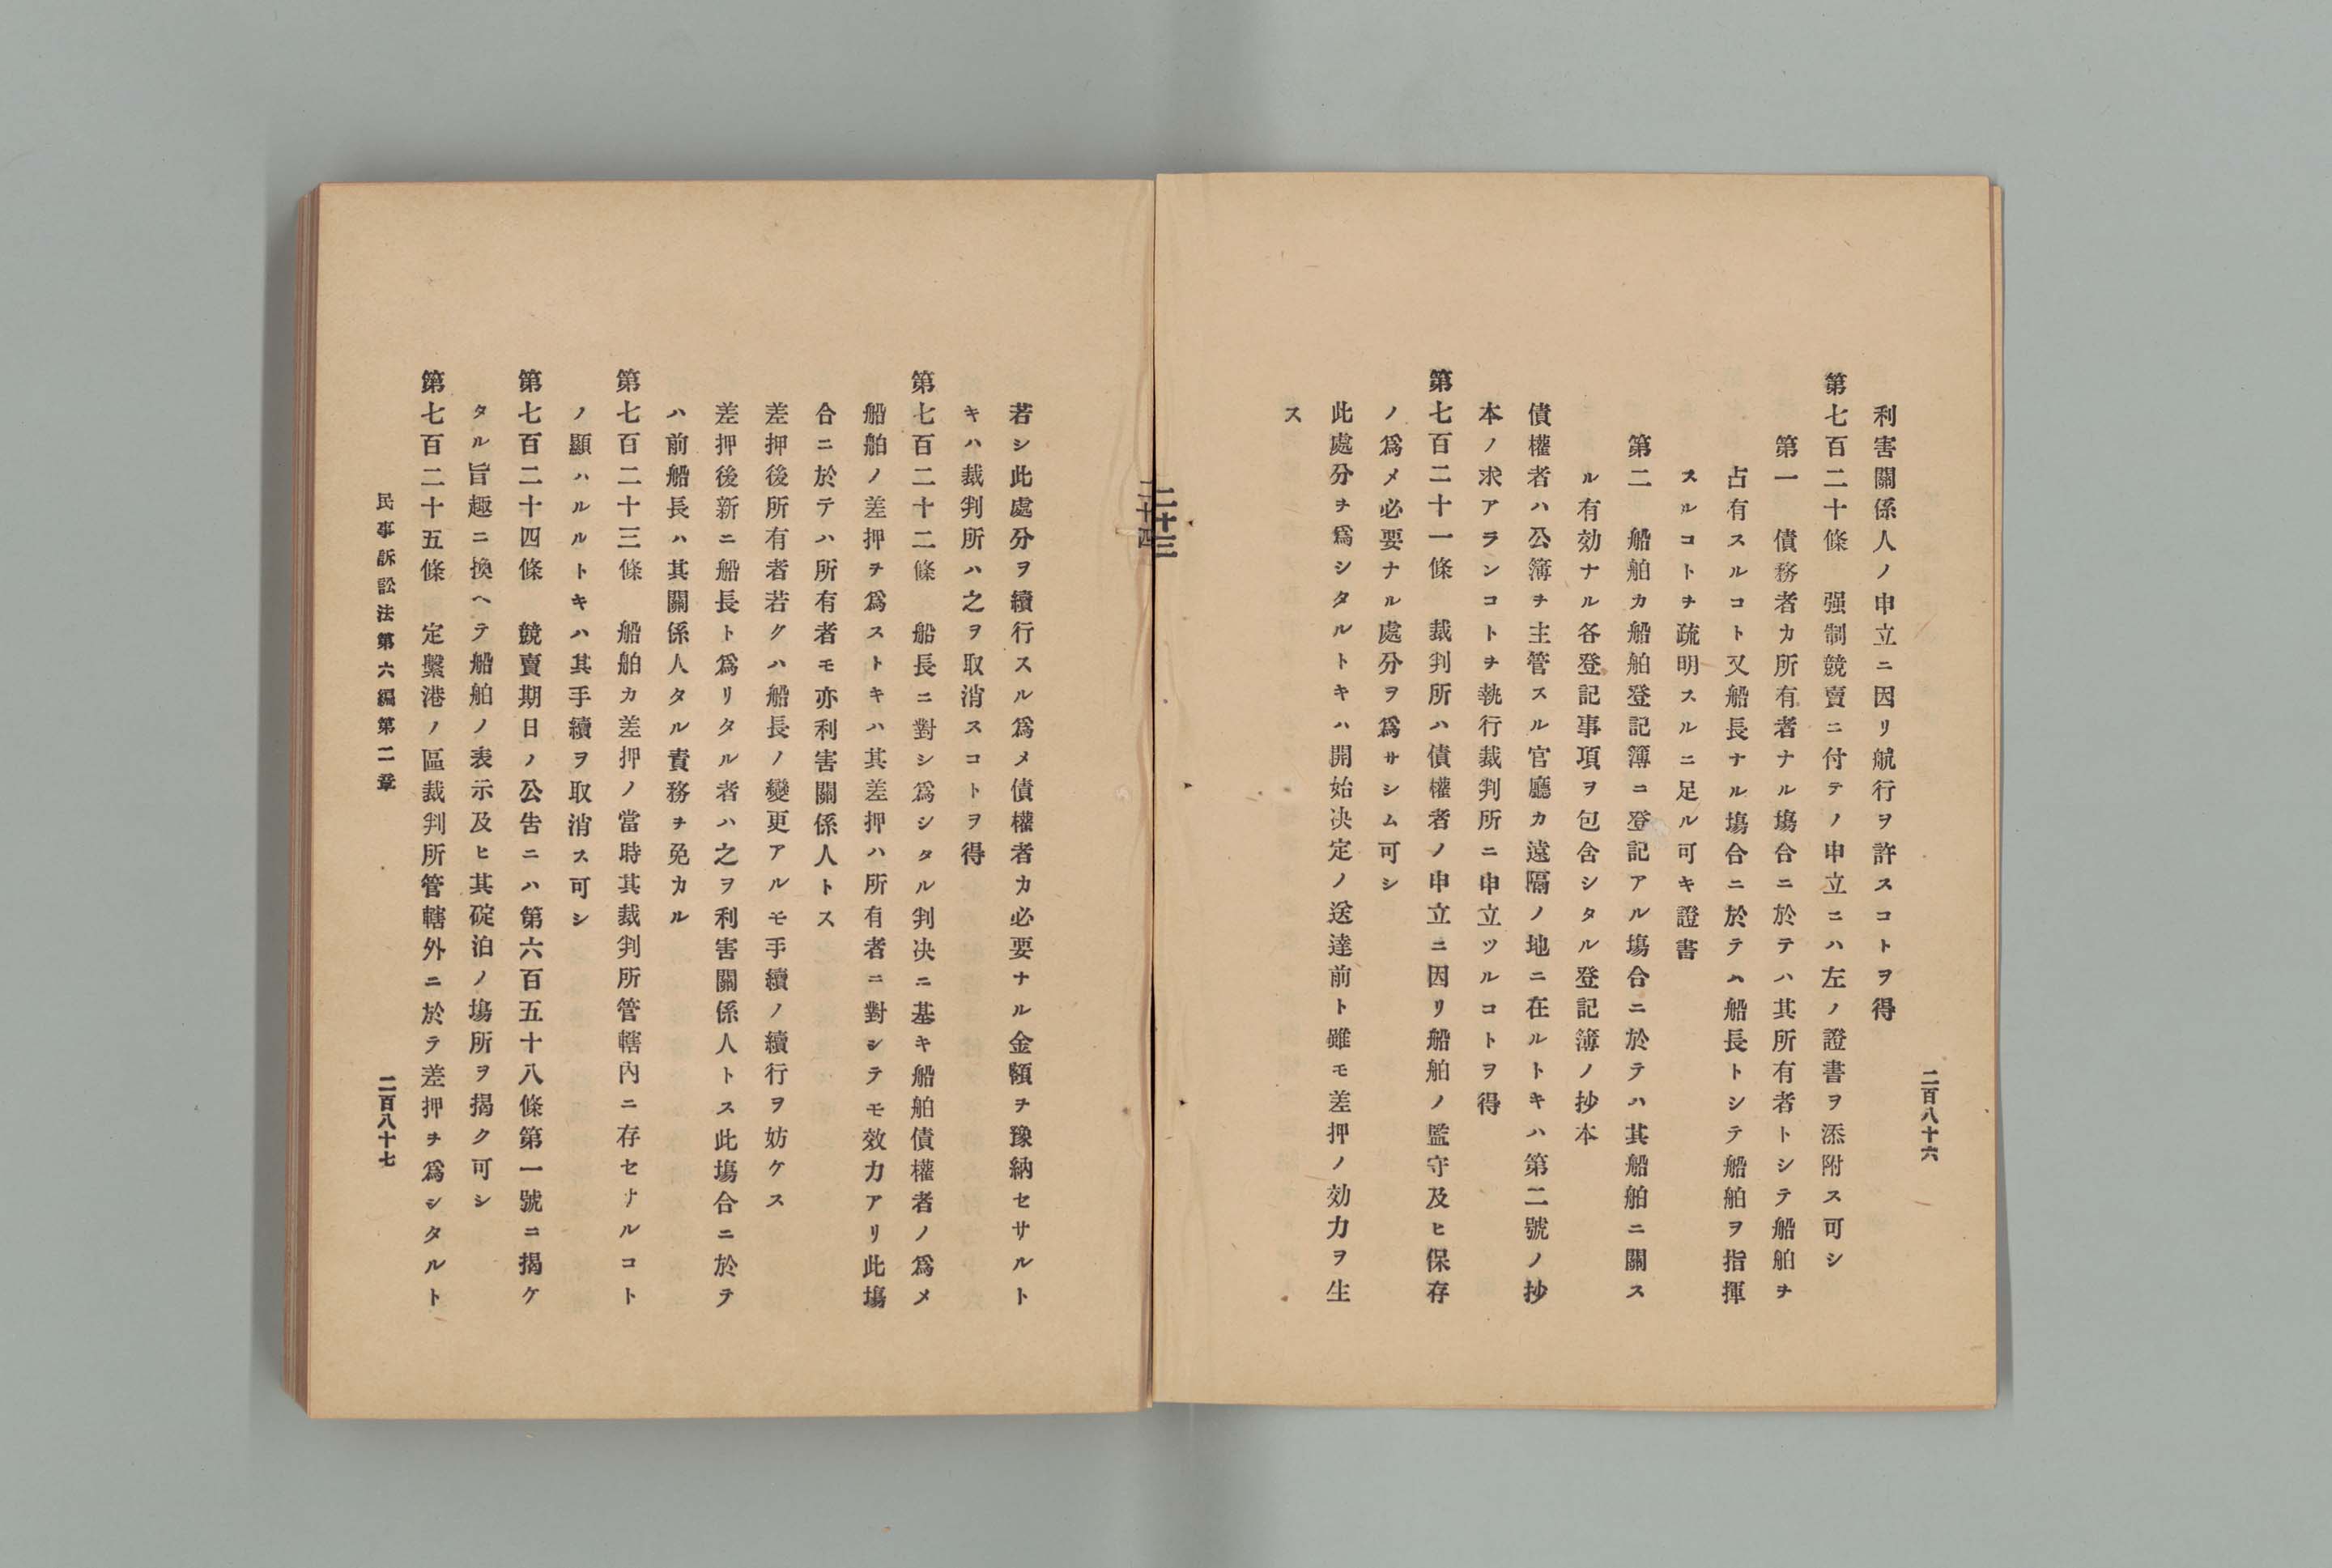 二百八十六
利害關係人ノ申立ニ因リ航行ヲ許スコトヲ得
第七百二十條　强制競賣ニ付テノ申立ニハ左ノ證書ヲ添附ス可シ
第一　債務者カ所有者ナル塲合ニ於テハ其所有者トシテ船舶ヲ
占有スルコト又船長ナル塲合ニ於テハ船長トシテ船舶ヲ指揮
スルコトヲ疏明スルニ足ル可キ證書
第二　船舶カ船舶登記簿ニ登記アル塲合ニ於テハ其船舶ニ關ス
ル有効ナル各登記事項ヲ包含シタル登記簿ノ抄本
債權者ハ公簿ヲ主管スル官廳カ遠隔ノ地ニ在ルトキハ第二號ノ抄
本ノ求アランコトヲ執行裁判所ニ申立ツルコトヲ得
第七百二十一條　裁判所ハ債權者ノ申立ニ因リ船舶ノ監守及ヒ保存
ノ爲メ必要ナル處分ヲ爲サシム可シ
此處分ヲ爲シタルトキハ開始决定ノ送達前ト雖モ差押ノ効力ヲ生
ス
二十三
二十四
若シ此處分ヲ續行スル爲メ債權者カ必要ナル金額ヲ豫納セサルト
キハ裁判所ハ之ヲ取消スコトヲ得
第七百二十二條　船長ニ對シ爲シタル判决ニ基キ船舶債權者ノ爲メ
船舶ノ差押ヲ爲ストキハ其差押ハ所有者ニ對シテモ效力アリ此塲
合ニ於テハ所有者モ亦利害關係人トス
差押後所有者若クハ船長ノ變更アルモ手續ノ續行ヲ妨ケス
差押後新ニ船長ト爲リタル者ハ之ヲ利害關係人トス此塲合ニ於テ
ハ前船長ハ其關係人タル責務ヲ免カル
第七百二十三條　船舶カ差押ノ當時其裁判所管轄內ニ存セサルコト
ノ顯ハルルトキハ其手續ヲ取消ス可シ
第七百二十四條　競賣期日ノ公吿ニハ第六百五十八條第一號ニ揭ケ
タル旨趣ニ換ヘテ船舶ノ表示及ヒ其碇泊ノ塲所ヲ揭ク可シ
第七百二十五條　定繫港ノ區裁判所管轄外ニ於テ差押ヲ爲シタルト
民事訴訟法第六編第二章
二百八十七